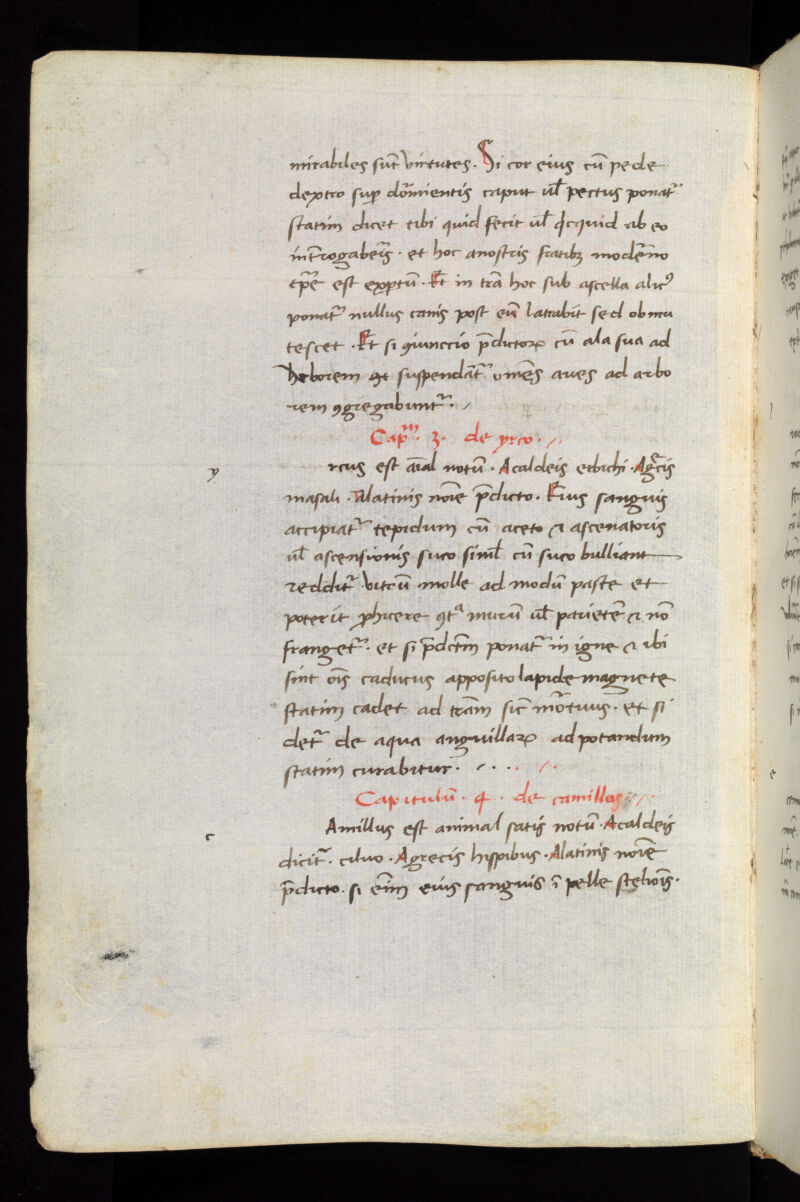 mirabiles su͂t virtutes. Si cor eius cu͂ pede
dextro sup̱ dor̃mientis caput ul̃ pectus ponat᷑
statim dicet tibi quid fecit ul̃ q̇cquid ab eo
int̃rogaberis. et hoc anostris fratibꝫ moder̃no
tp̃r̃e est exp̱tu͂. Et in tr̃a hoc sub ascella alicꝰ
ponat᷑ nullus canis post eu͂ latrabit sed obmu
tescet. Et si ꝯiunccio p̃dictoꝝ cu͂ ala sua ad
herborem et suspendãt᷑ omẽs aues ad arbo
rem ꝯgregabunt᷑.
Cap.ᵐ 3. de yrco.
y
rcus est aĩal notu͂. Acaldeis erbichi. Agr̃cis
masali. Alatinis noĩe p̃dicto. Eius sanguis
accipiat᷑ tepidum cu͂ aceto ⁊ ascenatoris
ul̃ ascensionis suco simĺ cu͂ suco bulliant
reddit᷑ vitru͂ molle ad modu͂ paste et
poterit ꝓhicere ꝯtᵃ muru͂ ul̃ pariete͂ ⁊ no͂
franget᷑. et si p̃dct̃m ponat᷑ in igne ⁊ ibi
sint oĩs caducus apposito lapide magnete
statim cadet ad tr̃am sic̃ mor̃tuus. et si
det᷑ de aqua anguillaꝝ ad potandum
statim curabitur.
Capitulu͂. 4. de camillos
c
Amillus est animal satis notu͂. Acaldeis
dicit᷑. ciluo. Agrecis hispibus. Alatinis noĩe
p̃dicto. si eĩm eius sanguis ĩ pelle steliõis.